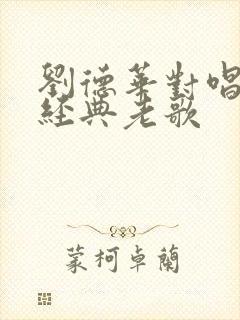 劉德華對唱
經典老歌
蒙柯卓蘭